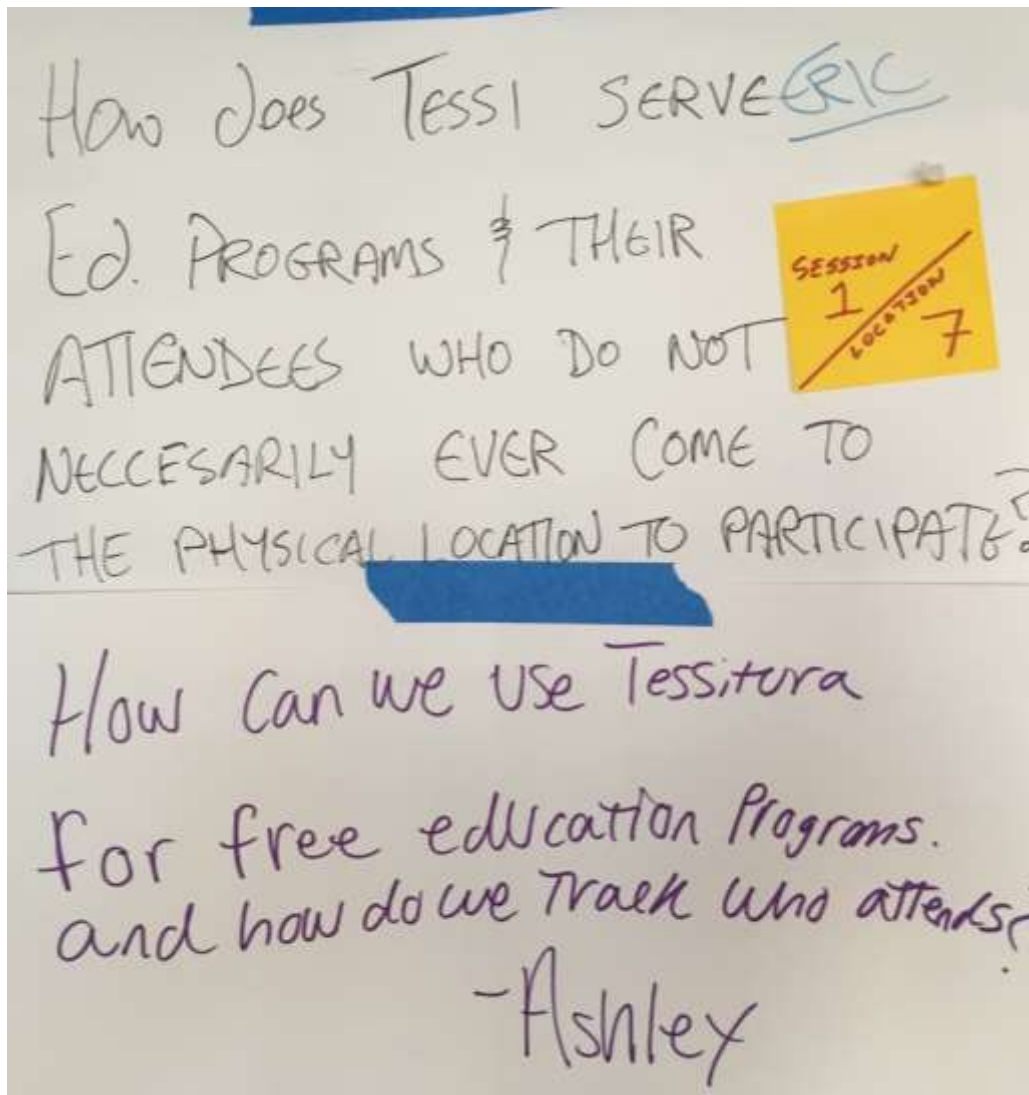 How does TESSI SERVE ERIC
Ed. PROGRAMS & THEIR
ATTENDEES WHO DO NOT
NECCESARILY EVER COME TO
THE PHYSICAL LOCATION TO PARTICIPATE?
SESSION
1
LOCATION
7
How can we use Tessitura
For free education Programs.
and how do we Track who attends?
-Ashley